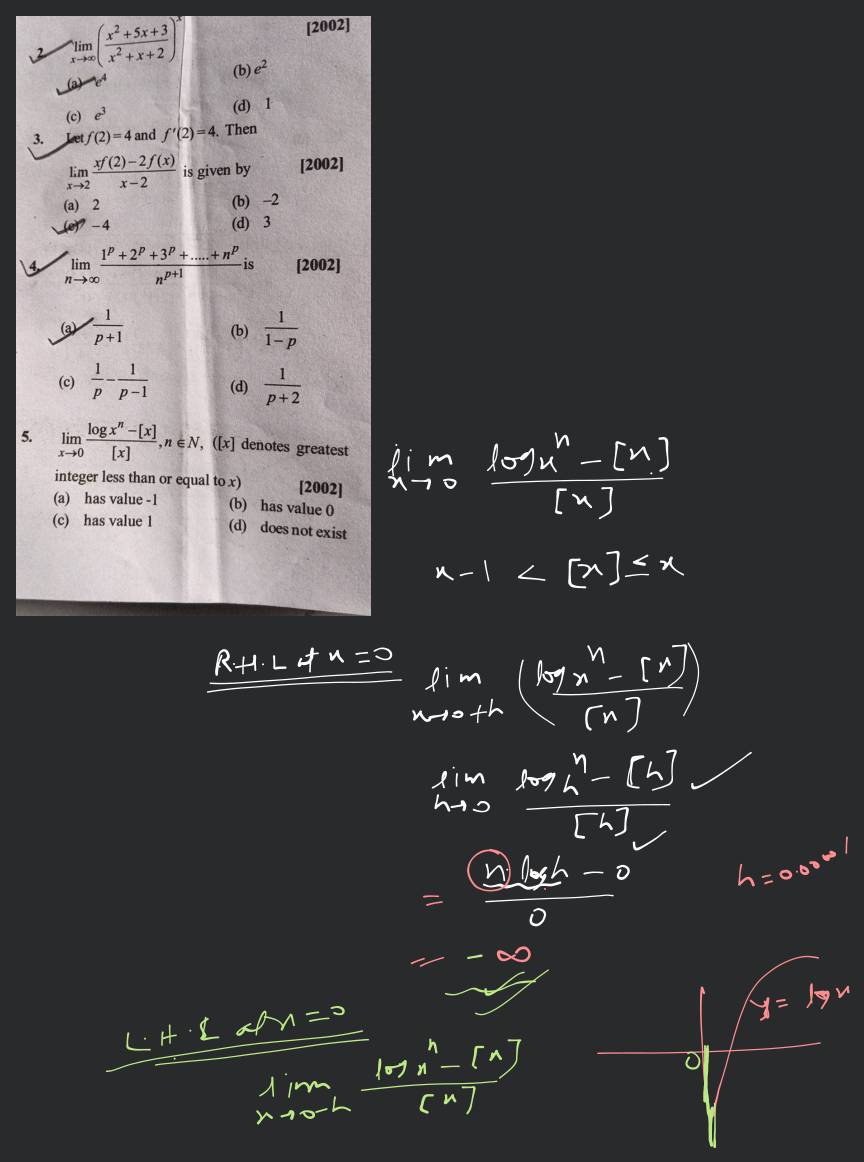 2. lim x→∞ ((x² + 5x + 3)/(x² + x + 2))^x [2002]
(a) e⁴ (b) e²
(c) e³ (d) 1
3. Let f(2) = 4 and f'(2) = 4. Then
lim x→2 (xf(2) − 2f(x))/(x − 2) is given by [2002]
(a) 2 (b) −2
(c) −4 (d) 3
4. lim n→∞ (1^p + 2^p + 3^p + ..... + n^p)/n^(p+1) is [2002]
(a) 1/(p+1) (b) 1/(1−p)
(c) 1/p − 1/(p−1) (d) 1/(p+2)
5. lim x→0 (log xⁿ − [x])/[x], n ∈ N, ([x] denotes greatest
integer less than or equal to x) [2002]
(a) has value -1 (b) has value 0
(c) has value 1 (d) does not exist
lim x→0 (log xⁿ − [x])/[x]
x−1 < [x] ≤ x
R.H.L at x = 0
lim x→0+h ((log xⁿ − [x])/[x])
lim h→0 (log hⁿ − [h])/[h]
= (n log h − 0)/0
h = 0.00001
= − ∞
y = log x
0
L.H.L at x = 0
lim x→0−h (log xⁿ − [x])/[x]